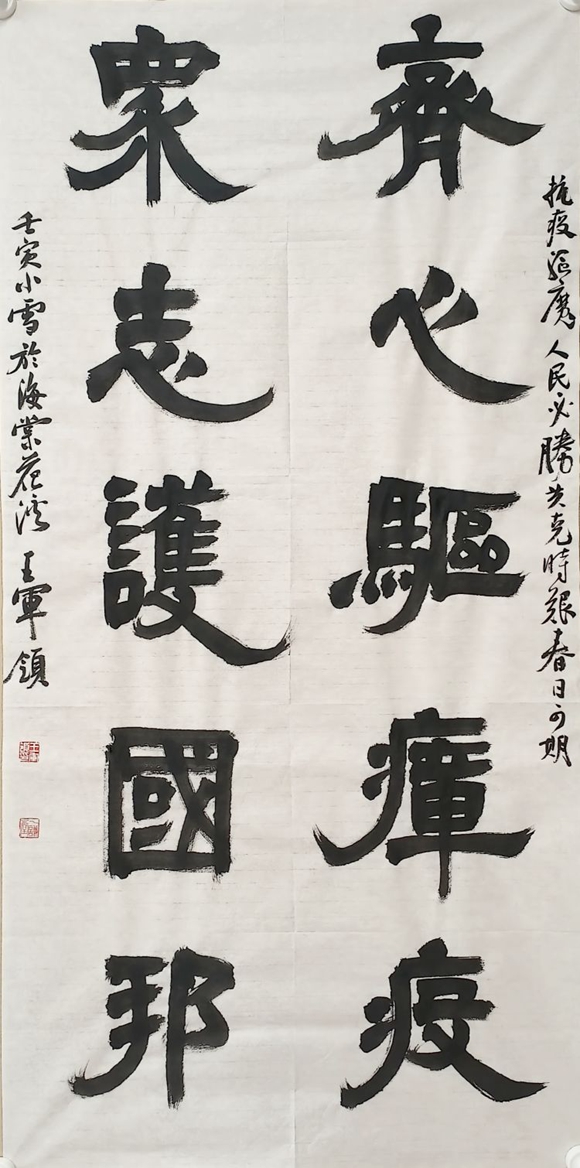 抗疫驅魔人民必勝共克時艱春日可期
齊心驅瘴疫
衆志護國邦
壬寅小雪於海棠花溪王軍領